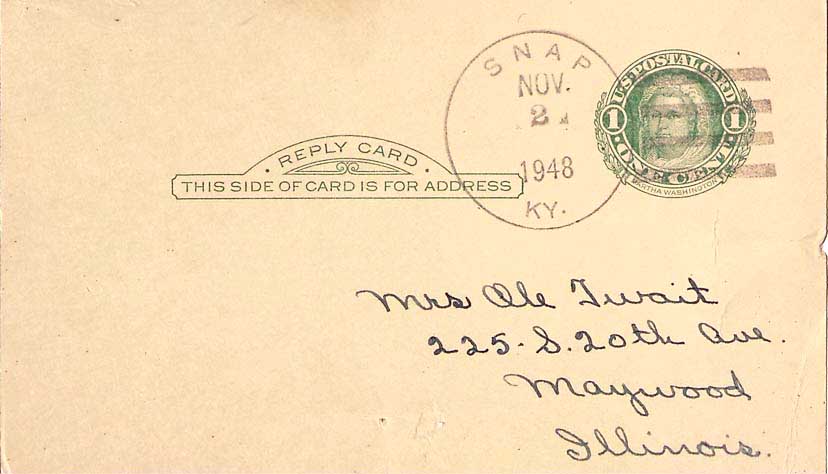 SNAP
NOV.
2
1948
KY.
U.S. POSTAL CARD
1 1
ONE CENT
MARTHA WASHINGTON
· REPLY CARD ·
THIS SIDE OF CARD IS FOR ADDRESS
Mrs Ole Twait
225 - S. 20th Ave.
Maywood
Illinois.